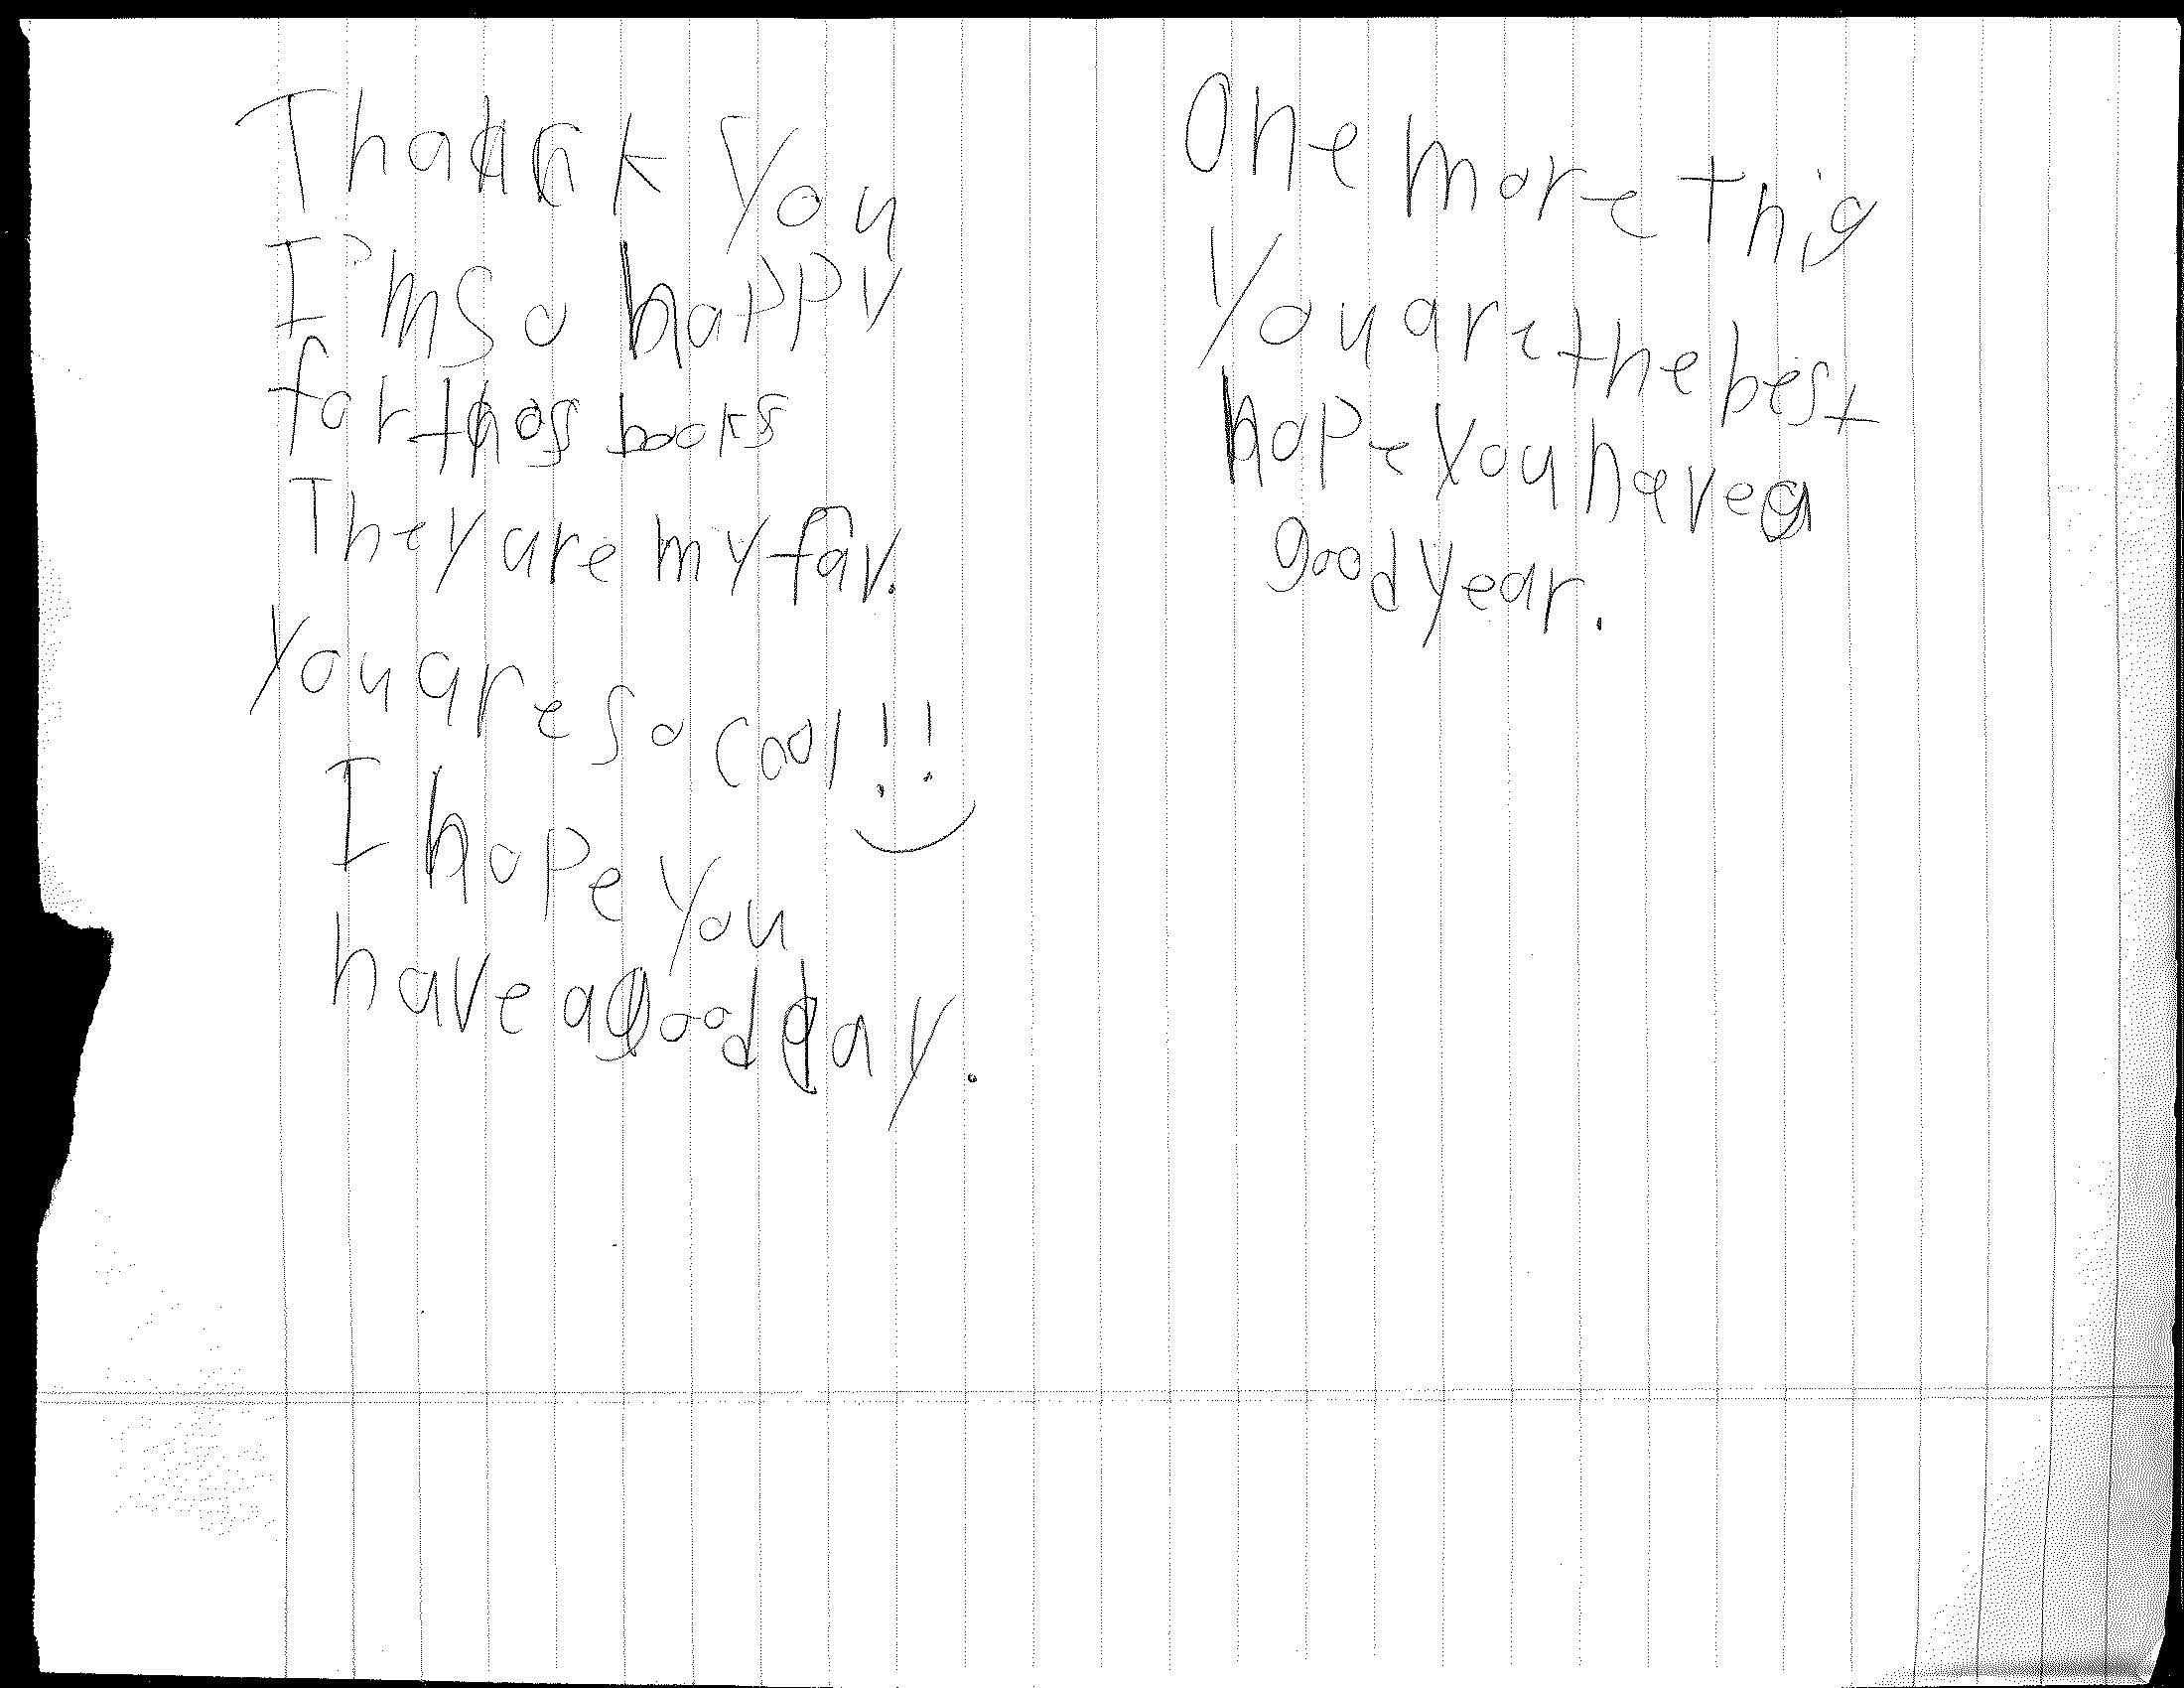 Thank you
I'm so happy
for thos books
They are my fav.
You are so cool!!
I hope you
have a good day.
One more thig
You are the best
hope you have a
good year.